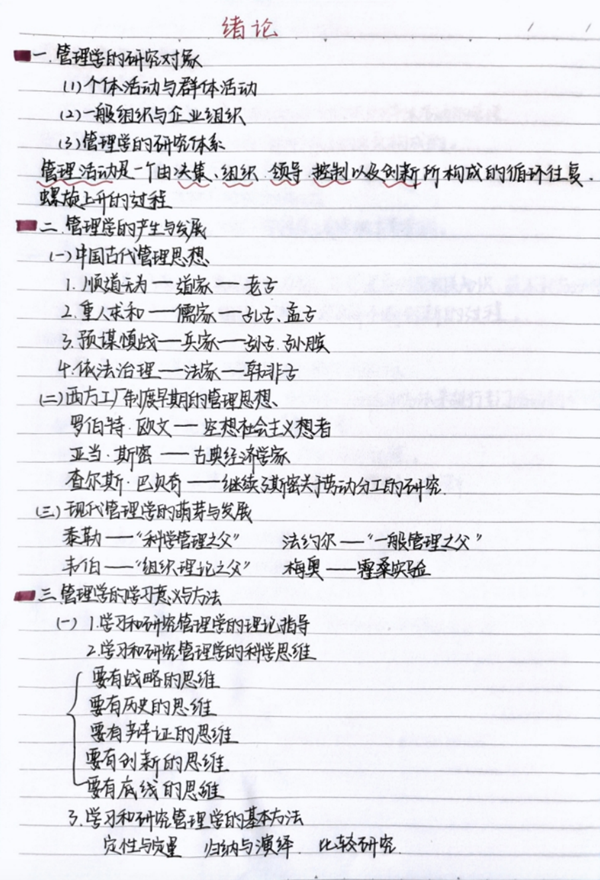 绪论
一.管理学的研究对象
(1)个体活动与群体活动
(2)一般组织与企业组织
(3)管理学的研究体系
管理活动是一个由决策、组织、领导、控制以及创新所构成的循环往复、
螺旋上升的过程
二.管理学的产生与发展
(一)中国古代管理思想
1.顺道无为——道家——老子
2.重人求和——儒家——孔子、孟子
3.预谋慎战——兵家——孙子、孙膑
4.依法治理——法家——韩非子
(二)西方工厂制度早期的管理思想
罗伯特·欧文——空想社会主义想者
亚当·斯密——古典经济学家
查尔斯·巴贝奇——继续了斯密关于劳动分工的研究
(三)现代管理学的萌芽与发展
泰勒——“科学管理之父” 法约尔——“一般管理之父”
韦伯——“组织理论之父” 梅奥——霍桑实验
三.管理学的学习意义与方法
(一) 1.学习和研究管理学的理论指导
2.学习和研究管理学的科学思维
要有战略的思维
要有历史的思维
要有辩证的思维
要有创新的思维
要有底线的思维
3.学习和研究管理学的基本方法
定性与定量 归纳与演绎 比较研究